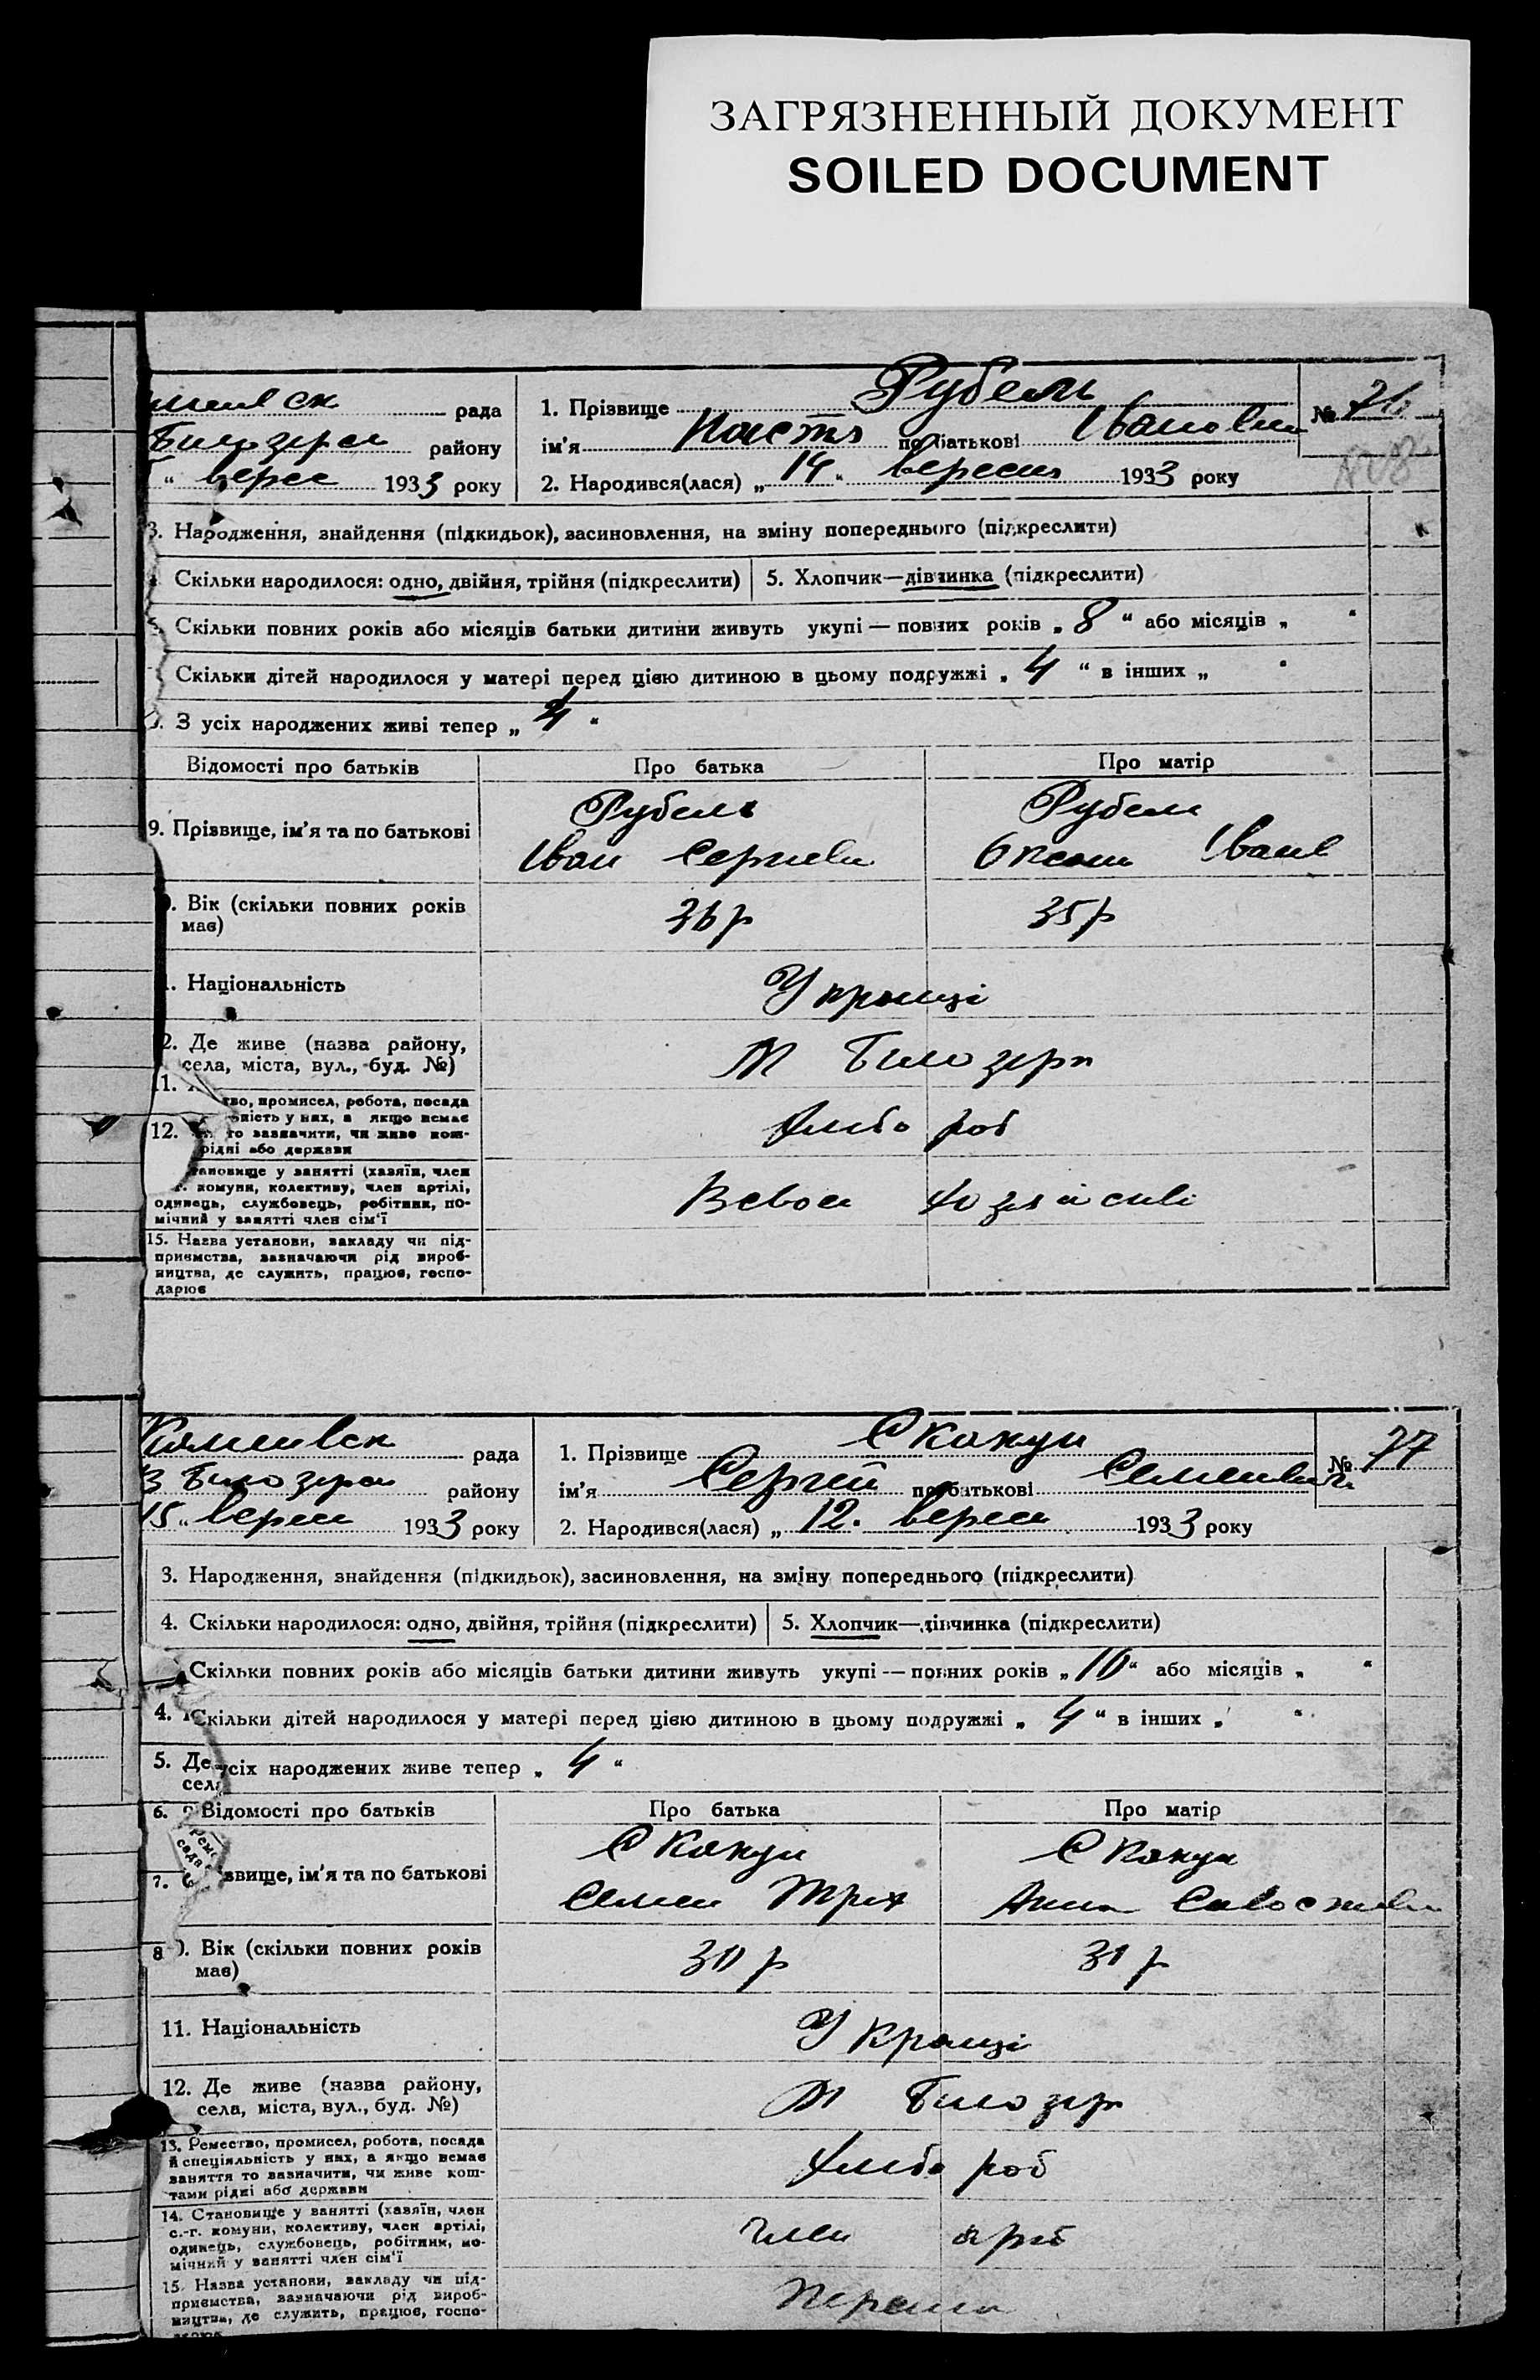 ЗАГРЯЗНЕННЫЙ ДОКУМЕНТ
SOILED DOCUMENT
рада
району
“ верес 1933 року
1. Прізвище Рубель
ім’я Настя по батькові Івановна
2. Народився(лася) „ 14 “ вересня 1933 року
№ 76
3. Народження, знайдення (підкидьок), засиновлення, на зміну попереднього (підкреслити)
Скільки народилося: одно, двійня, трійня (підкреслити)
5. Хлопчик—дівчинка (підкреслити)
Скільки повних років або місяців батьки дитини живуть укупі — повних років „ 8 “ або місяців „ “
Скільки дітей народилося у матері перед цією дитиною в цьому подружжі „ 4 “ в інших „ “
З усіх народжених живі тепер „ 4 “
Відомості про батьків
Про батька
Про матір
9. Прізвище, ім’я та по батькові
Рубель
Іван
Рубель
Вік (скільки повних років
має)
36 р
35 р
Національність
Українці
2. Де живе (назва району,
села, міста, вул., буд. №)
М Білозерк
11.
тво, промисел, робота, посада
ність у них, а якщо немає
12. то зазначити, чи живе кош-
рідні або держави
Хлібо роб
тановище у занятті (хазяїн, член
г. комуни, колективу, член артілі,
одинець, службовець, робітник, по-
мічний у занятті член сім’ї
15. Назва установи, закладу чи під-
приємства, зазначаючи рід вироб-
ництва, де служить, працює, госпо-
дарює
рада
району
15 „ верес 1933 року
1. Прізвище Скакун
ім’я Сергій по батькові Семенович
2. Народився(лася) „ 12. верес 1933 року
№ 77
3. Народження, знайдення (підкидьок), засиновлення, на зміну попереднього (підкреслити)
4. Скільки народилося: одно, двійня, трійня (підкреслити)
5. Хлопчик—дівчинка (підкреслити)
Скільки повних років або місяців батьки дитини живуть укупі — повних років „ 10 “ або місяців „ “
4. Скільки дітей народилося у матері перед цією дитиною в цьому подружжі „ 4 “ в інших „ “
5. Де усіх народжених живе тепер „ 4 “
села
6. Відомості про батьків
Про батька
Про матір
7. звище, ім’я та по батькові
Скакун
Семен
Скакун
Анна
8 Вік (скільки повних років
має)
30 р
31 р
11. Національність
Українці
12. Де живе (назва району,
села, міста, вул., буд. №)
М Білозерк
13. Ремество, промисел, робота, посада
й спеціяльність у них, а якщо немає
заняття то зазначити, чи живе кош-
тами рідні або держави
Хлібо роб
14. Становище у занятті (хазяїн, член
с.-г. комуни, колективу, член артілі,
одинець, службовець, робітник, по-
мічний у занятті член сім’ї
член арт
15. Назва установи, закладу чи під-
приємства, зазначаючи рід вироб-
ництва, де служить, працює, госпо-